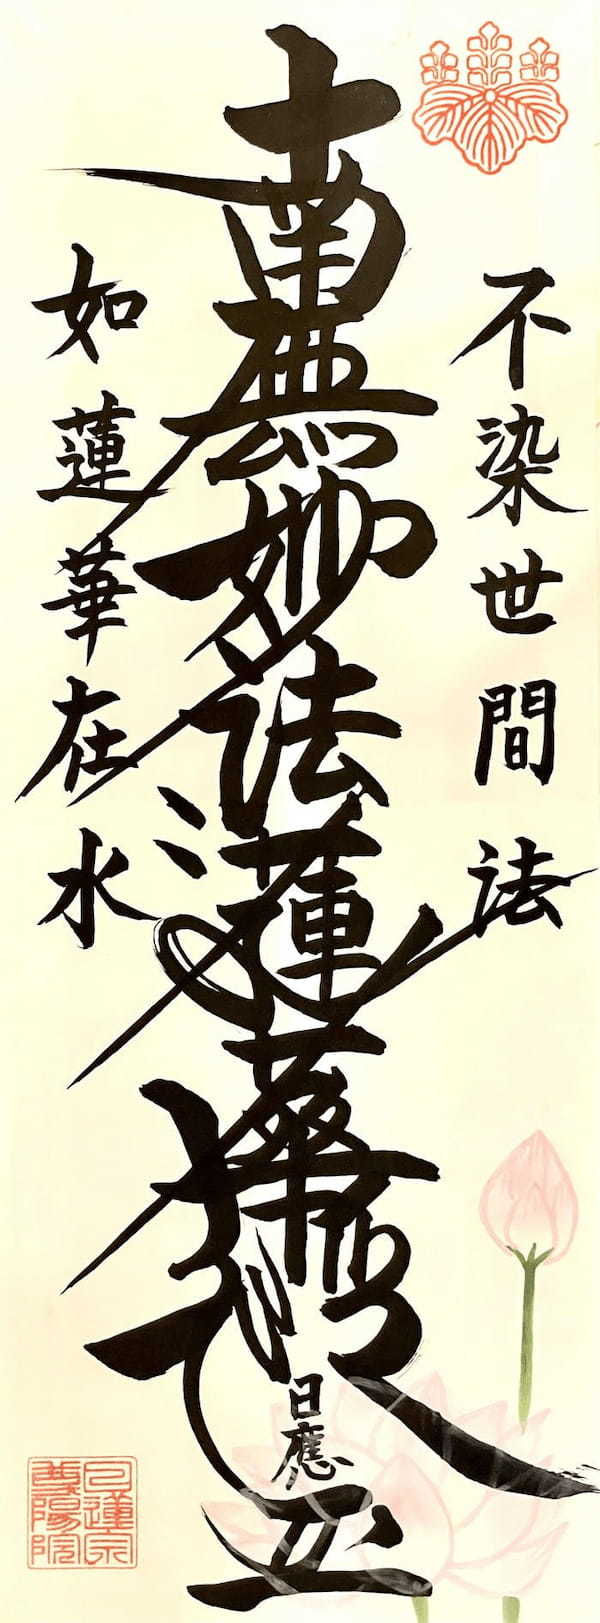 不染世間法
南無妙法蓮華経
日應
如蓮華在水
日蓮宗
尊陽院